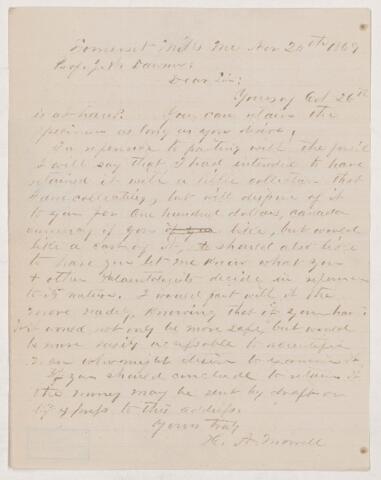 Somerset Mills Me Nov 20th 1869
Prof. J. W. Dawson;
Dear Sir;
Yours of Oct 26th
is at hand. You can retain the
specimen as long as you desire.
In reference to parting with the fossil
I will say that I had intended to have
retained it with a little collection that
I am collecting, but will dispose of it
to you for One hundred dollars, Canada
currency if you if you like, but would
like a cast of it, & should also like
to have you let me know what you
& other Palaeontologists decide in reference
to its nature. I would part with it the
more readily knowing that if you have
it it would not only be more safe, but would
be more easily accessible to scientific
men who might desire to examine it
If you should conclude to retain it
the money may be sent by draft or
by express to this address.
Yours truly
H. A. Morrill